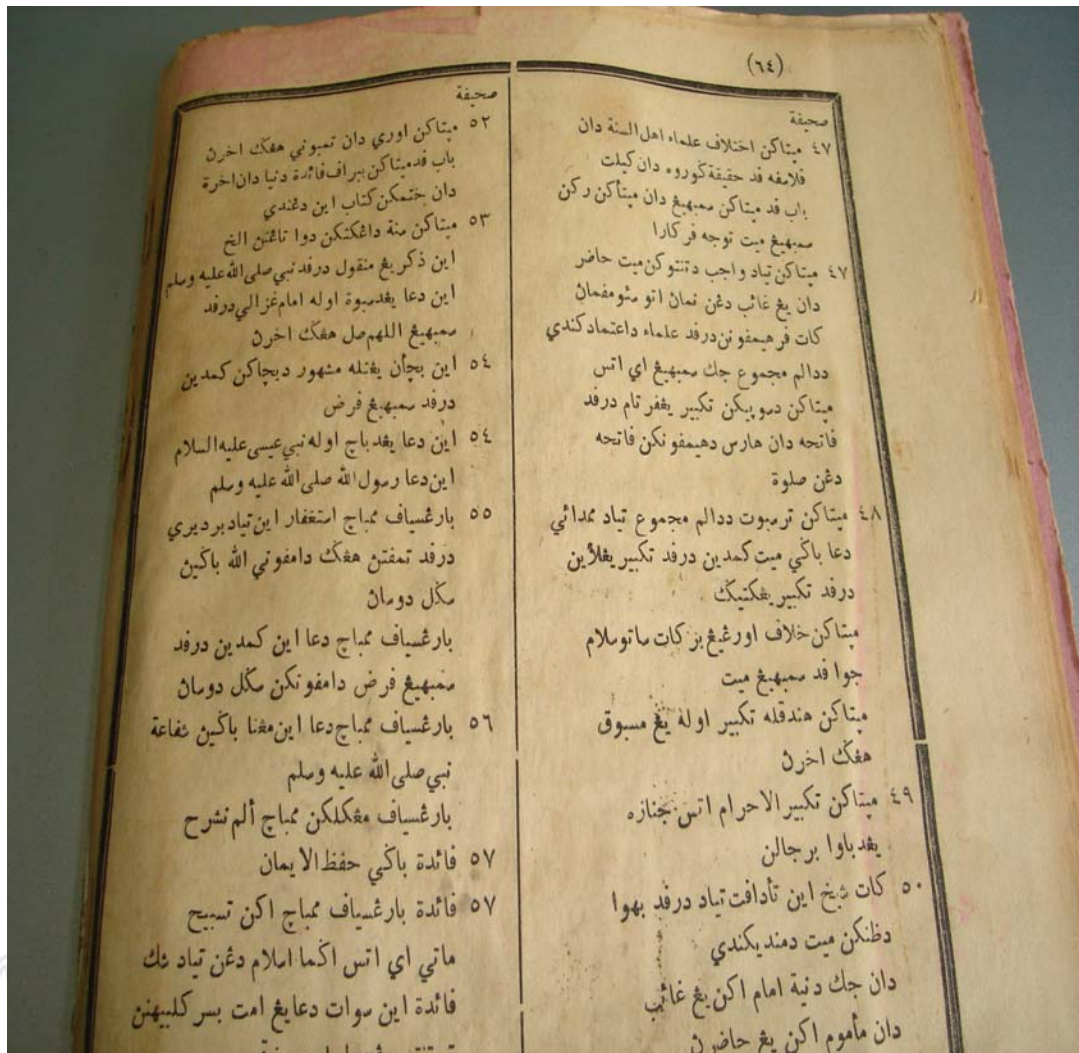 (٦٤)
صحيفة
٤٧ مپتاكن اختلاف علماء اهل السنة دان
فلامفه قد حقيقة كوروه دان كيلت
باب قد مپتاكن سمبهيڠ دان مپتأكن ركن
سمبهيڠ ميت توجه فركارا
٤٧ مپتاكن تياد واجب دتنتوكن ميت حاضر
دان يڠ غائب دڠن نمان اتو
كات فرهيمفونن درفد علماء داعتمادكندي
ددالم مجموع جك سمبهيڠ اي اتس
مپتاكن تكبير يڠفرتام درفد
فاتحه دان هارس دهيمفونكن فاتحه
دڠن صلوة
٤٨ مپتاكن ترسبوت ددالم مجموع تياد ممدائي
دعا باكي ميت كمدين درفد تكبير يڠلأين
درفد تكبير يڠكتيݢ
مپتاكن خلاف اورڠيڠ بركات ساتو سلام
جوا فد سمبهيڠ ميت
مپتاكن هندقله تكبير اوله يڠ مسبوق
هڠݢ اخرن
٤٩ مپتاكن تكبير الاحرام اتس جنازه
يڠدباوا برجالن
٥٠ كات شيخ اين تأدافت تياد درفد بهوا
دظنكن ميت دمنديكندي
دان جك دنية امام اكن يڠ غائب
دان مأموم اكن يڠ حاضرن
صحيفة
٥٢ مپتاكن اوري دان تمبوني هڠݢ اخرن
باب فدمپتاكن ببراف فائدة دنيا دان اخرة
دان ختمكن كتاب اين دڠندي
٥٣ مپتاكن سنة داڠكتكن دوا تاڠن الخ
اين ذكر يڠ منقول درفد نبي صلى الله عليه وسلم
اين دعا يڠدسبوة اوله امام غزالي درفد
سمبهيڠ اللهم صل هڠݢ اخرن
٥٤ اين بچأن يڠتله مشهور دبچاكن كمدين
درفد سمبهيڠ فرض
٥٤ اين دعا يڠدباچ اوله نبي عيسى عليه السلام
اين دعا رسول الله صلى الله عليه وسلم
٥٥ بارڠسياف ممباچ استغفار اين تياد برديري
درفد تمفتن هڠݢ دامفوني الله باݢين
سݢل دوسان
بارڠسياف ممباچ دعا اين كمدين درفد
سمبهيڠ فرض دامفونكن سݢل دوسان
٥٦ بارڠسياف ممباچ دعا اين مڠنا باݢين شفاعة
نبي صلى الله عليه وسلم
بارڠسياف مڠكلكن ممباچ ألم نشرح
٥٧ فائدة باݢي حفظ الايمان
٥٧ فائدة بارڠسياف ممباچ اكن تسبيح
ماتي اي اتس اݢما اسلام دڠن تياد شك
فائدة اين سوات دعا يڠ امت بسر كلبيهنن